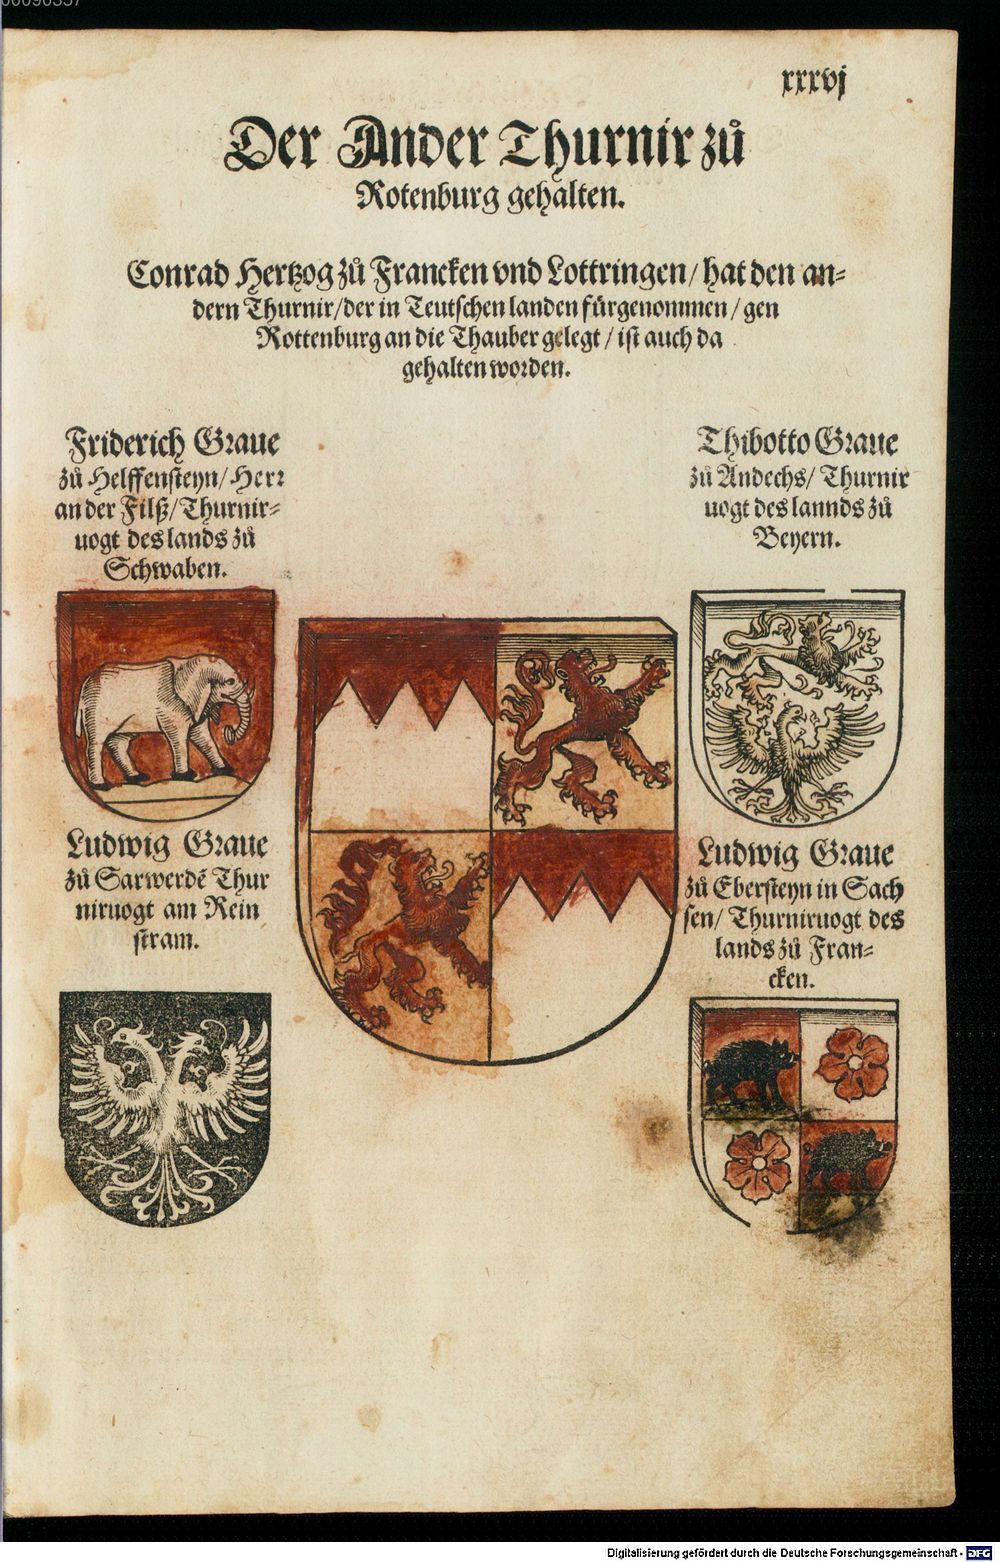 00090357
xxxvj
Der Ander Thurnir zů
Rotenburg gehalten.
Conrad Hertzog zů Francken vnd Lottringen/ hat den an⸗
dern Thurnir/ der in Teutschen landen fürgenommen/ gen
Rottenburg an die Thauber gelegt/ ist auch da
gehalten worden.
Friderich Graue
zů Helffensteyn/ Herr
an der Filß/ Thurnir⸗
uogt des lands zů
Schwaben.
Thibotto Graue
zů Andechs/ Thurnir
uogt des lannds zů
Beyern.
Ludwig Graue
zů Sarwerdẽ Thur
niruogt am Rein
stram.
Ludwig Graue
zů Ebersteyn in Sach
sen/ Thurniruogt des
lands zů Fran⸗
cken.
Digitalisierung gefördert durch die Deutsche Forschungsgemeinschaft - DFG